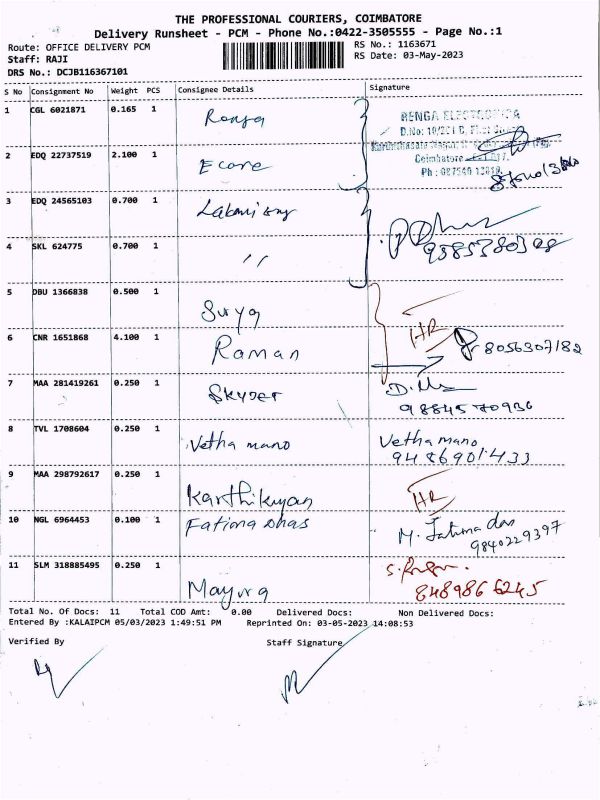 THE PROFESSIONAL COURIERS, COIMBATORE
Delivery Runsheet - PCM - Phone No.:0422-3505555 - Page No.:1
Route: OFFICE DELIVERY PCM
Staff: RAJI
DRS No.: DCJB116367101
RS No.: 1163671
RS Date: 03-May-2023
S No Consignment No Weight PCS Consignee Details Signature
1 CGL 6021871 0.165 1 Renga
RENGA ELECTRONICA
Coimbatore
2 EDQ 22737519 2.100 1 Ecare
3 EDQ 24565103 0.700 1
4 SKL 624775 0.700 1 〃
5 DBU 1366838 0.500 1 Surya HR
6 CNR 1651868 4.100 1 Raman 8056307182
7 MAA 281419261 0.250 1 Skyzer
9884570936
8 TVL 1708604 0.250 1 Vetha mano Vethamano
9486901433
9 MAA 298792617 0.250 1 Karthikeyan HR
10 NGL 6964453 0.100 1 Fatima Dhas M. Fatima das
9840229397
11 SLM 318885495 0.250 1 Mayura
8489866245
Total No. Of Docs: 11 Total COD Amt: 0.00 Delivered Docs: Non Delivered Docs:
Entered By :KALAIPCM 05/03/2023 1:49:51 PM Reprinted On: 03-05-2023 14:08:53
Verified By Staff Signature